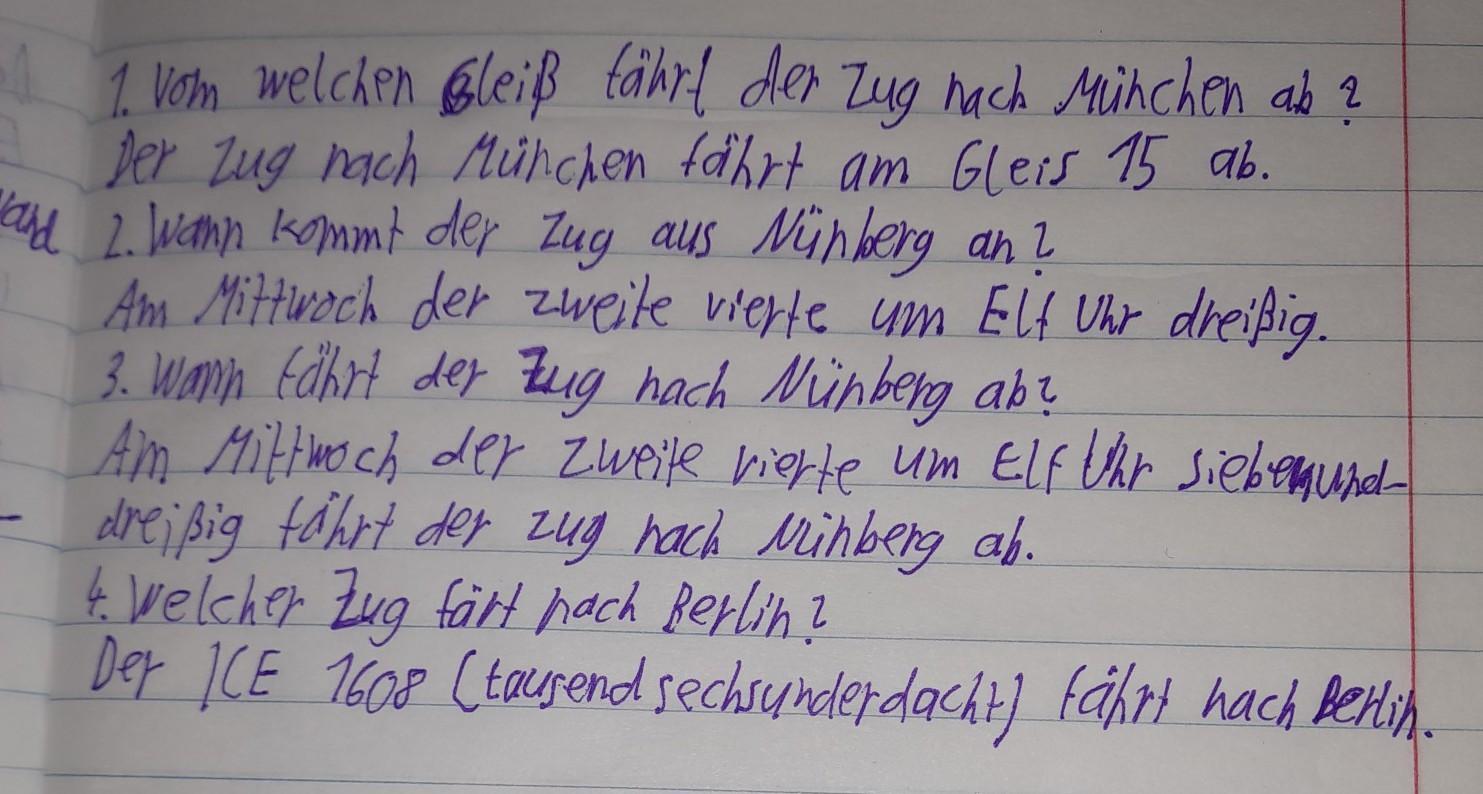 1. Vom welchen Gleiß fährt der Zug nach München ab?
Der Zug nach München fährt am Gleis 15 ab.
2. Wann kommt der Zug aus Nünberg an?
Am Mittwoch der zweite vierte um Elf Uhr dreißig.
3. Wann fährt der Zug nach Nünberg ab?
Am Mittwoch der zweite vierte um Elf Uhr siebenund-
dreißig fährt der zug nach Nünberg ab.
4. Welcher Zug färt nach Berlin?
Der ICE 1608 (tausend sechsunderdacht) fährt nach Berlin.